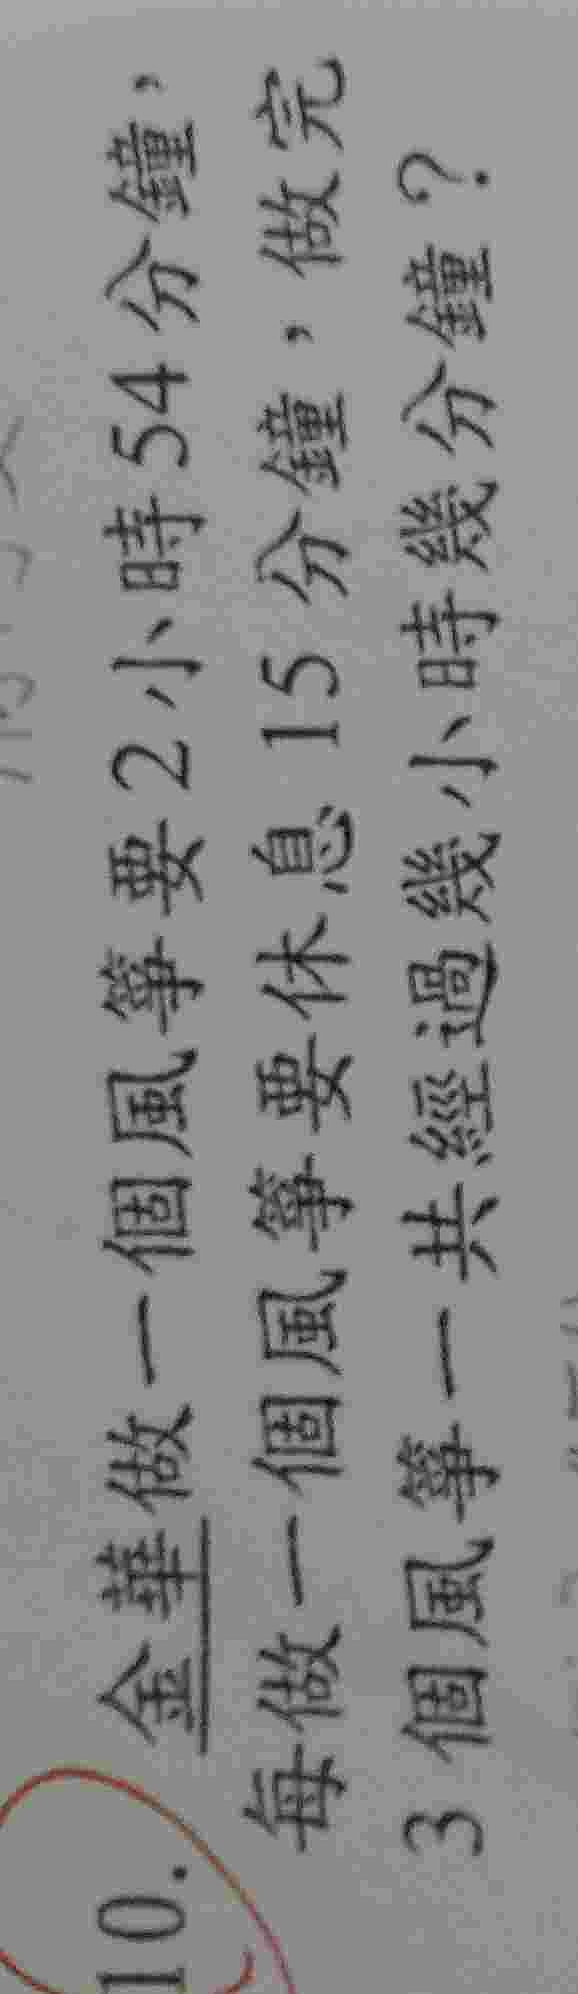 10. 金華做一個風箏要2小時54分鐘，
每做一個風箏要休息15分鐘，做完
3個風箏一共經過幾小時幾分鐘？